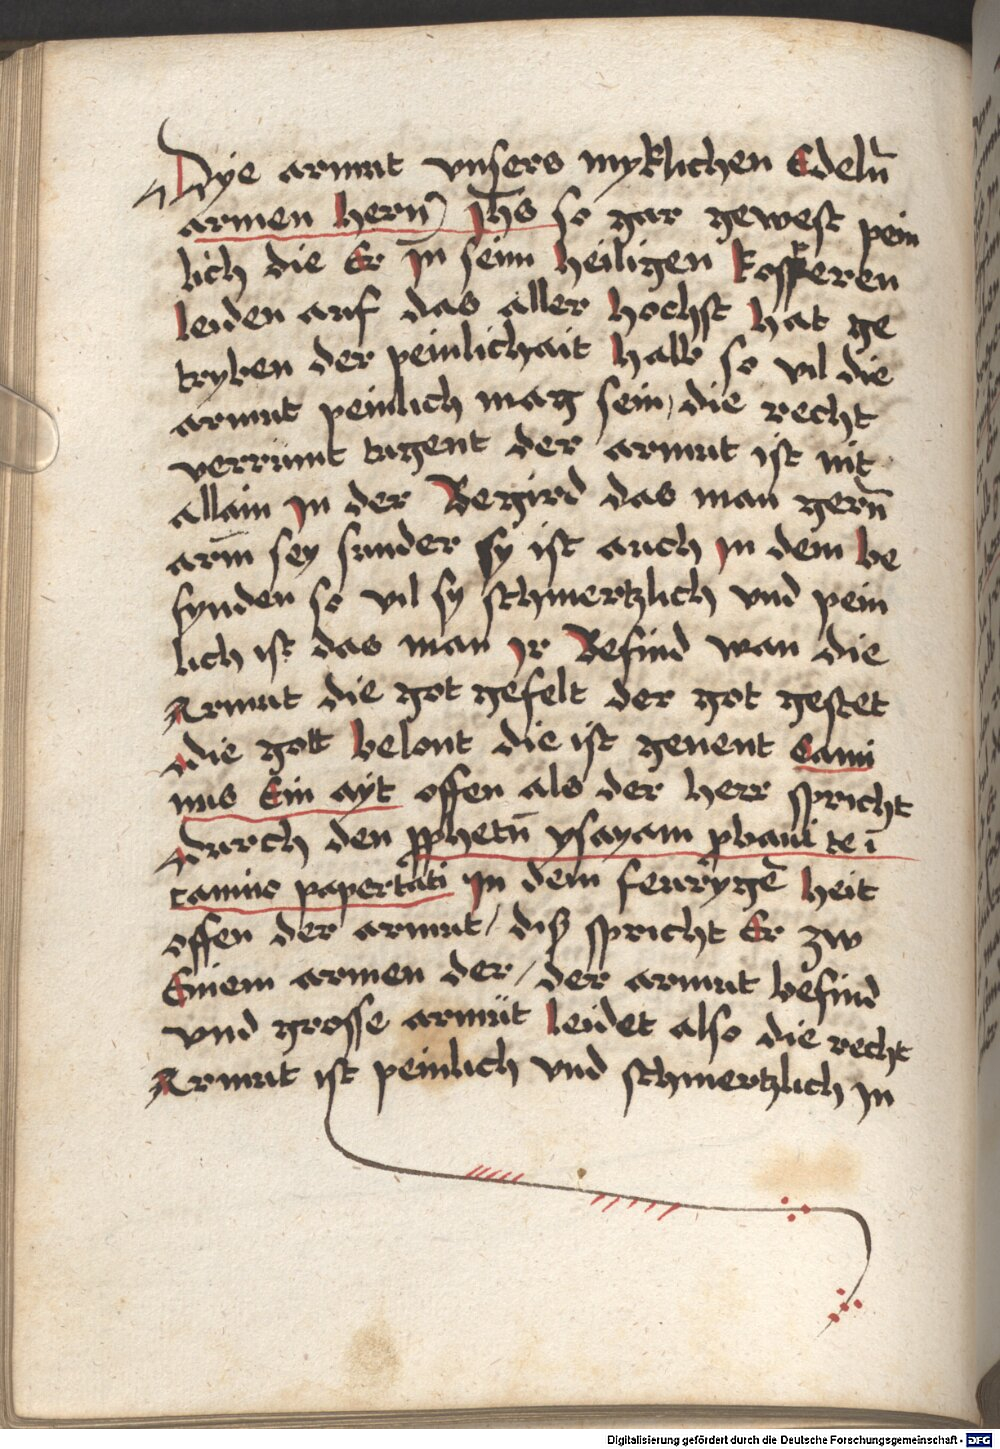 Dye armut vnsers myklichen Edelñ
armen hern̄ Jhs so gar gewest pein
lich die Er Jn seim heiligen kospperen
leiden auf das aller hochst hat ge
tryben der peinlichait halb so vil die
armut peinlich mag sein, die recht
verrümt tugent der armut ist nit
allain Jn der Begird das man gern̄
arm̄ sey sunder sy ist auch Jn dem be
fynden so vil sy schmertzlich vnd pein
lich ist das man Jr Befind wan die
Armut die got gefelt der got gestet
die gott belont die ist genent Cami
nus Ein ayt offen als der herr spricht
durch den pphetn̄ ysayam pbaui te ī
camino papertati Jn dem feurygē heit
offen der armut / diß spricht Er zw
Einem armen der / der armut befind
vnd grosse armüt leidet also die recht
Armut ist peinlich vnd schmertzlich Jn
Digitalisierung gefördert durch die Deutsche Forschungsgemeinschaft - DFG